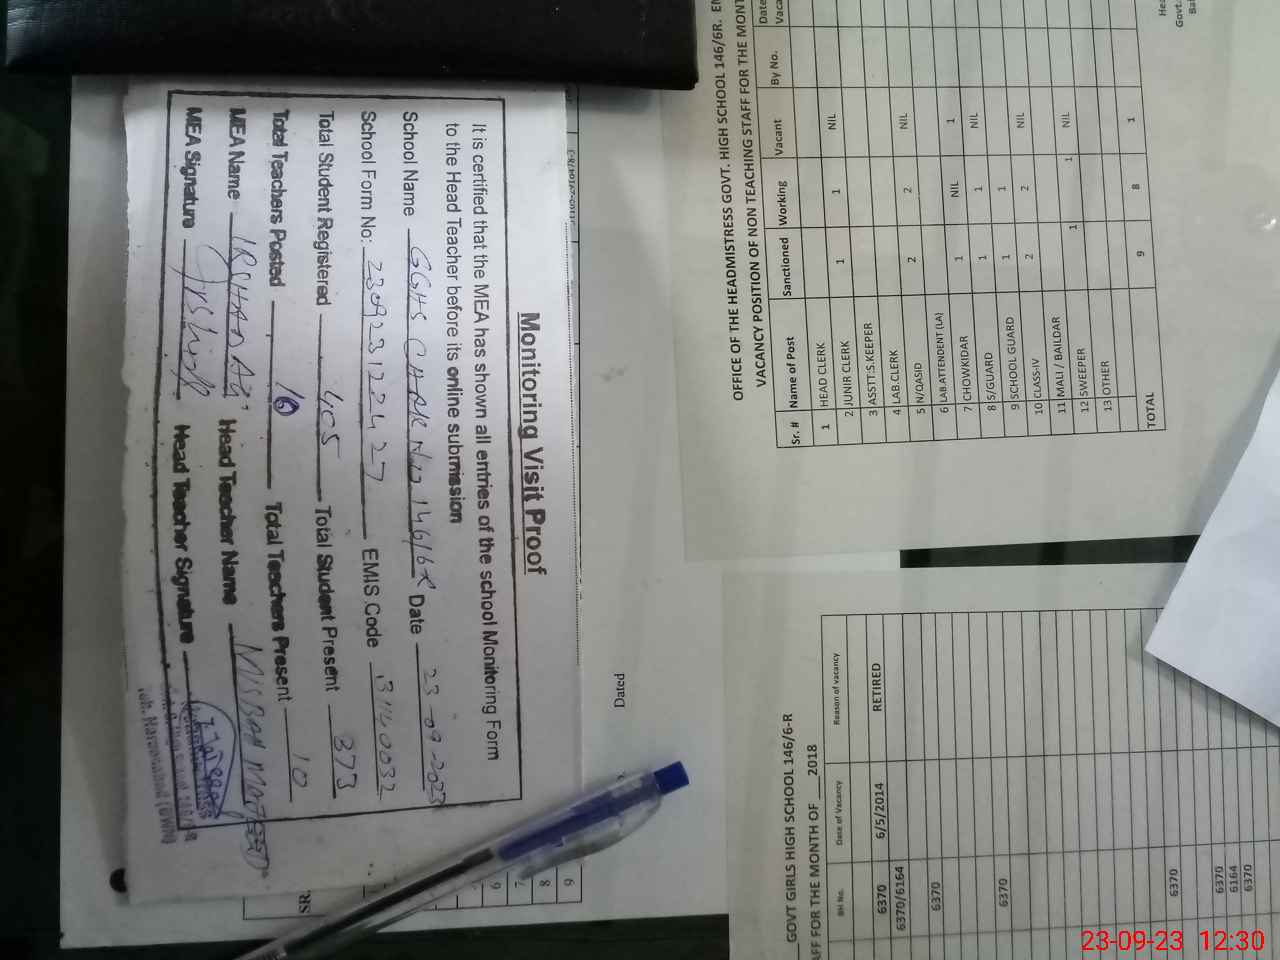 Monitoring Visit Proof
It is certified that the MEA has shown all entries of the school Monitoring Form
to the Head Teacher before its online submission
School Name GGHS CHAK No 146/6R Date 23-09-2023
School Form No: 230923122427 EMIS Code 31140032
Total Student Registered 405 Total Student Present 373
Total Teachers Posted 10 Total Teachers Present 10
MEA Name IRSHAD Ali Head Teacher Name MISBAH MATEEN
MEA Signature Irshad Head Teacher Signature
Dated
9
7
8
9
OFFICE OF THE HEADMISTRESS GOVT. HIGH SCHOOL 146/6R.
VACANCY POSITION OF NON TEACHING STAFF FOR THE MONT
Sr. # Name of Post Sanctioned Working Vacant By No. Date Vaca
1 HEAD CLERK
2 JUNIR CLERK 1 1 NIL
3 ASSTT:S.KEEPER
4 LAB.CLERK
5 N/QASID 2 2 NIL
6 LAB.ATTENDENT (LA)
7 CHOWKIDAR 1 NIL 1
8 S/GUARD 1 1 NIL
9 SCHOOL GUARD 1 1
10 CLASS-IV 2 2 NIL
11 MALI / BAILDAR
12 SWEEPER 1 1 NIL
13 OTHER
TOTAL 9 8 1
Hea
Govt.
Ba
GOVT GIRLS HIGH SCHOOL 146/6-R
AFF FOR THE MONTH OF ___2018
BH No. Date of Vacancy Reason of vacancy
6370 6/5/2014 RETIRED
6370/6164
6370
6370
6370
6370
6164
6370
23-09-23 12:30